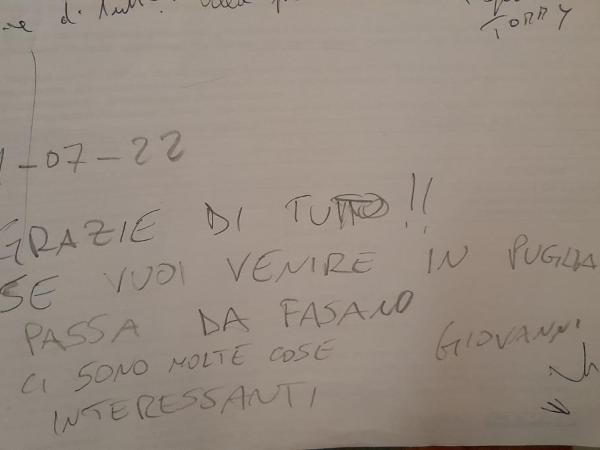 di
TORRY
-07-22
GRAZIE DI TUTTO!!
SE VUOI VENIRE IN PUGLIA
PASSA DA FASANO
CI SONO MOLTE COSE
INTERESSANTI
GIOVANNI